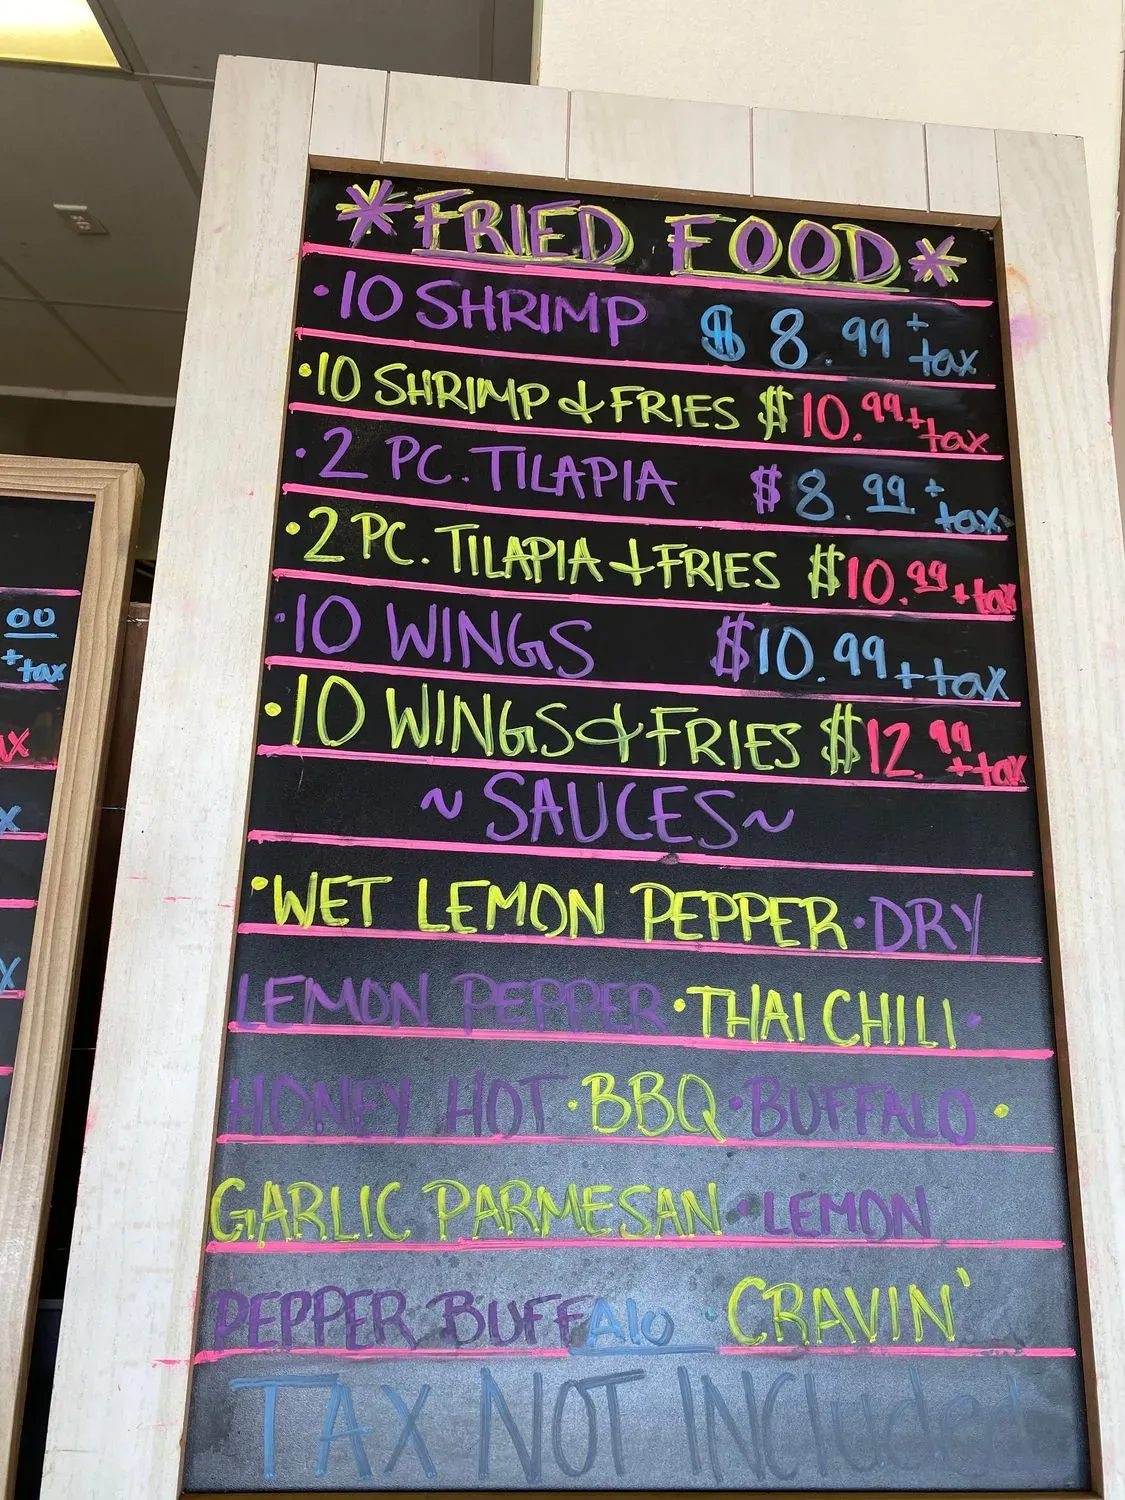 *FRIED FOOD*
·10 SHRIMP $8.99 + tax
·10 SHRIMP & FRIES $10.99 + tax
·2 PC. TILAPIA $8.99 + tax
·2 PC. TILAPIA + FRIES $10.99 + tax
·10 WINGS $10.99 + tax
·10 WINGS & FRIES $12.99 + tax
~SAUCES~
·WET LEMON PEPPER ·DRY
LEMON PEPPER ·THAI CHILI ·
HONEY HOT ·BBQ ·BUFFALO ·
GARLIC PARMESAN ·LEMON
PEPPER BUFFAlo ·CRAVIN'
TAX NOT INCluded
00
+ tax